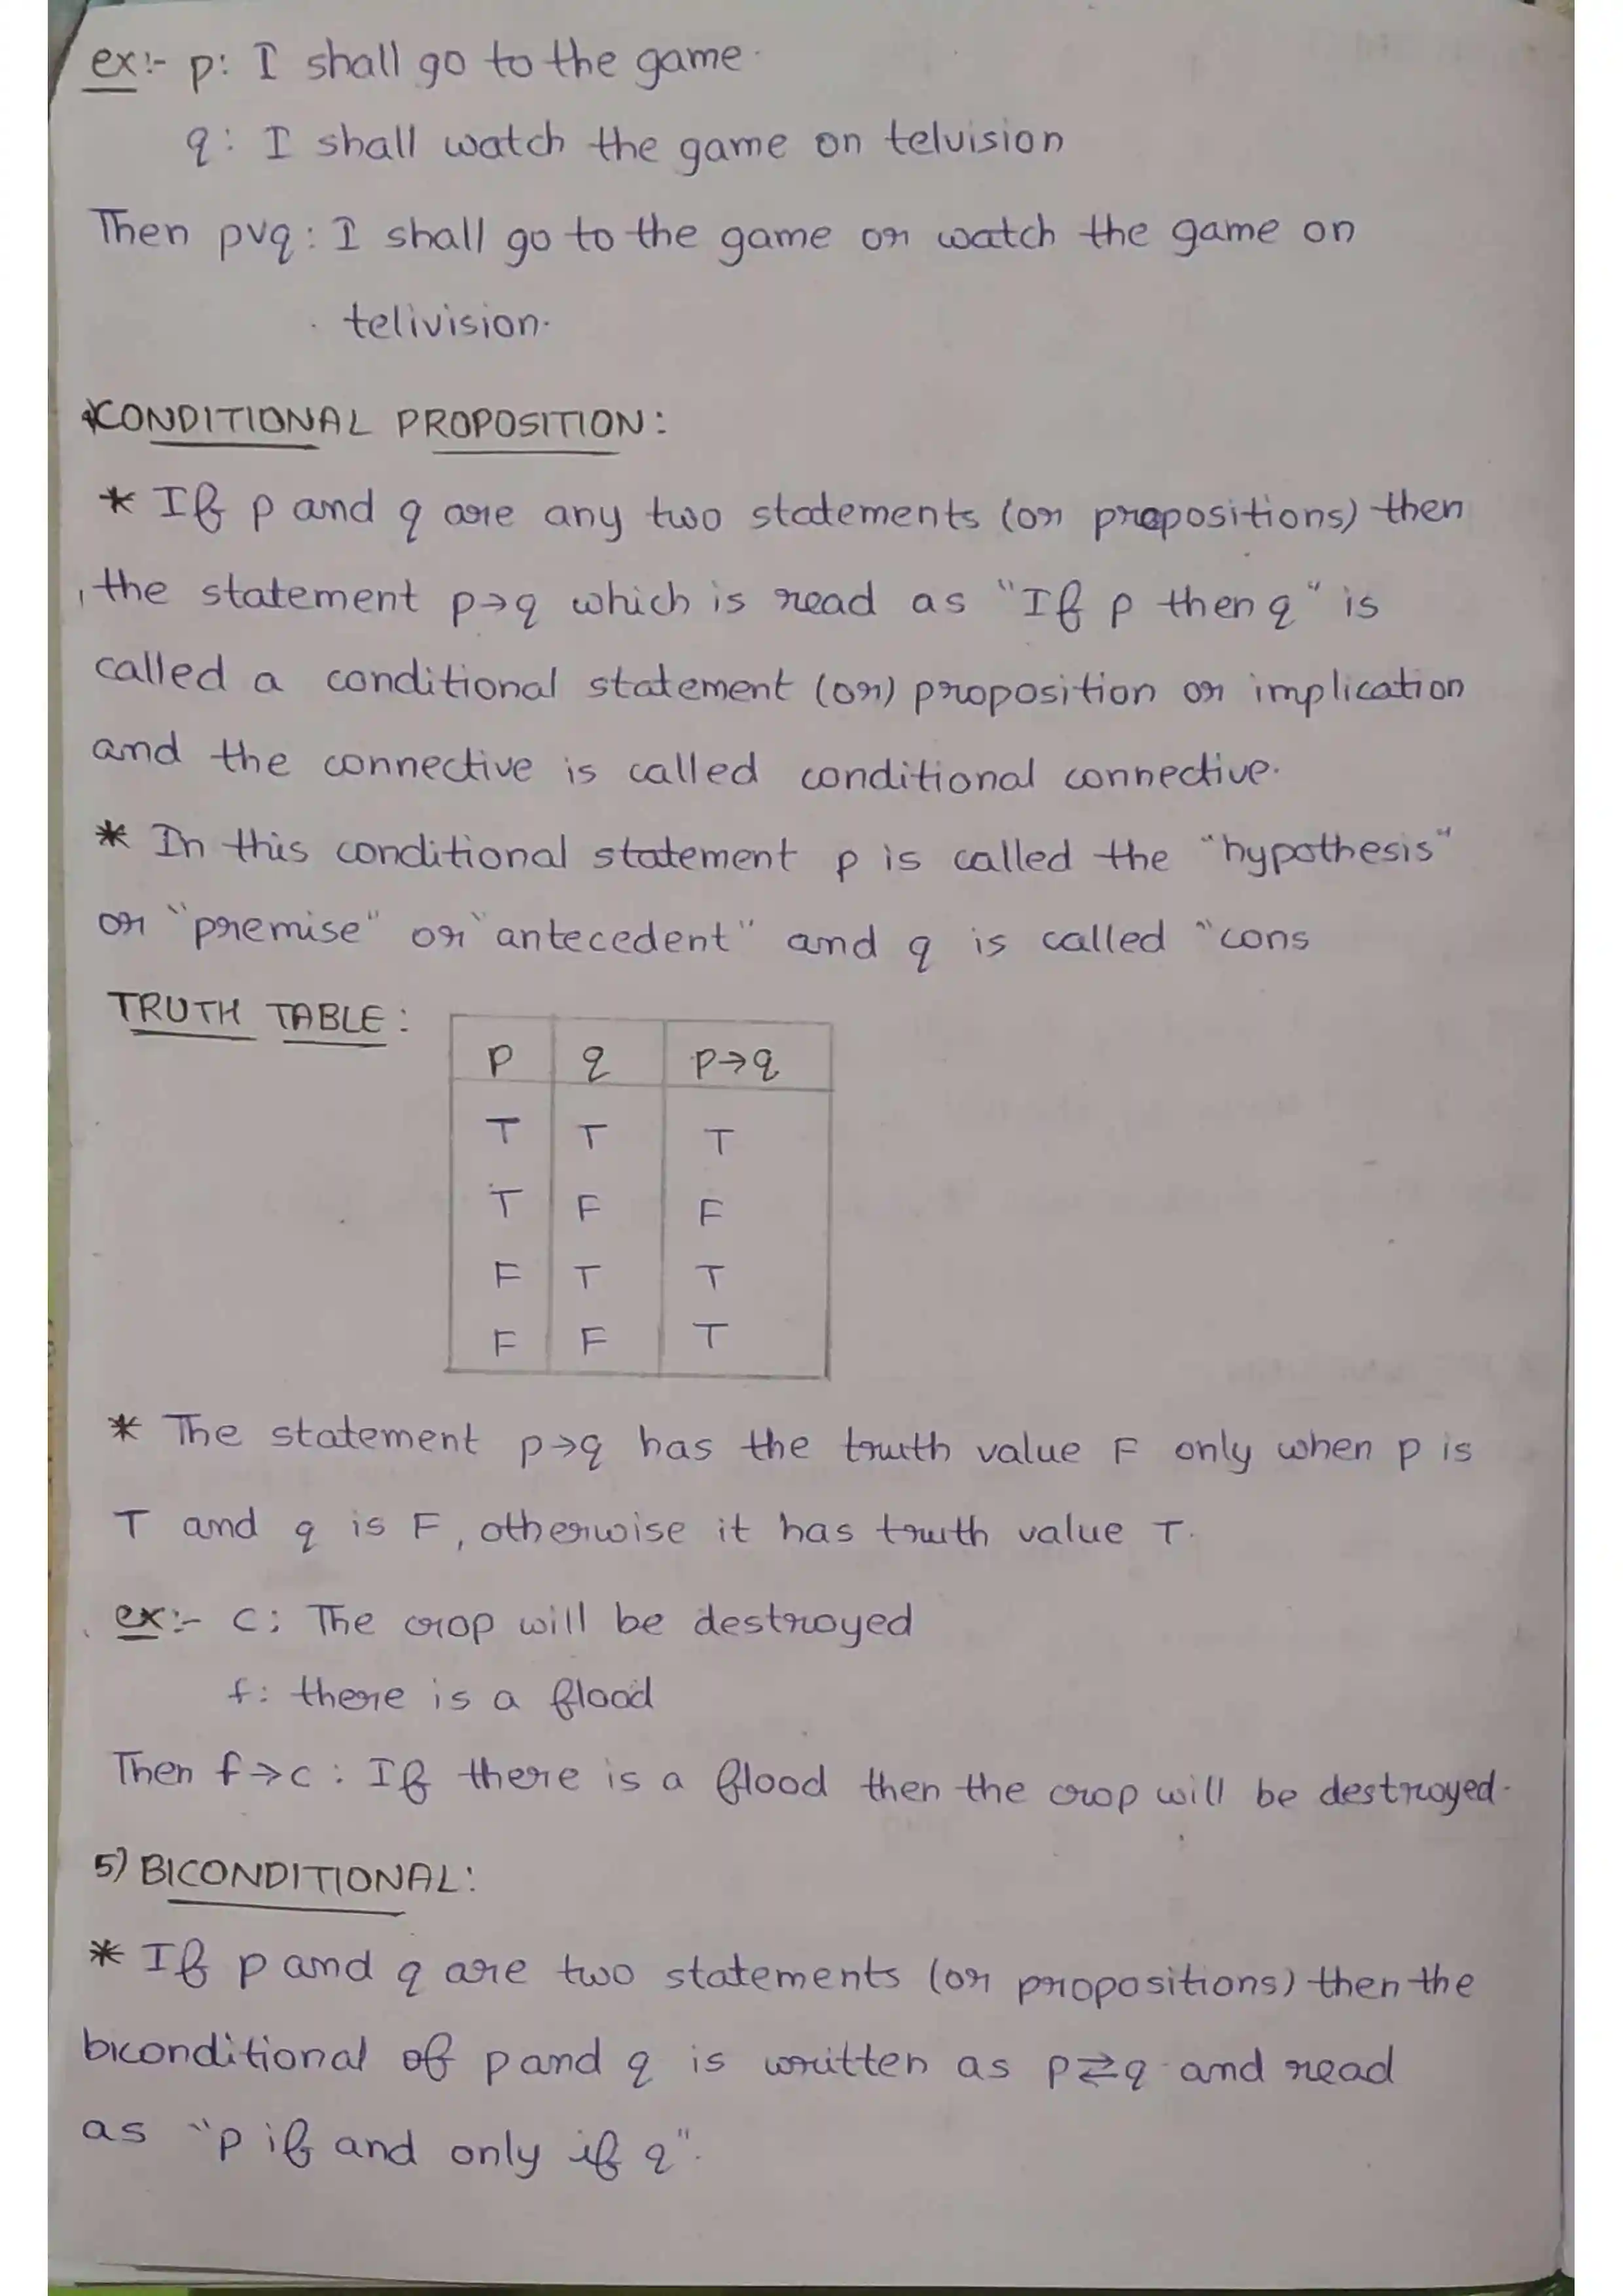 ex:- p: I shall go to the game.
q: I shall watch the game on telvision
Then p∨q: I shall go to the game or watch the game on
telivision.
CONDITIONAL PROPOSITION:
* If p and q are any two statements (or propositions) then
the statement p→q which is read as "If p then q" is
called a conditional statement (or) proposition or implication
and the connective is called conditional connective.
* In this conditional statement p is called the "hypothesis"
or "premise" or "antecedent" and q is called "cons
TRUTH TABLE:
p q p→q
T T T
T F F
F T T
F F T
* The statement p→q has the truth value F only when p is
T and q is F, otherwise it has truth value T.
ex:- c: The crop will be destroyed
f: there is a flood
Then f→c: If there is a flood then the crop will be destroyed.
5) BICONDITIONAL:
* If p and q are two statements (or propositions) then the
biconditional of p and q is written as p⇄q and read
as "p if and only if q".